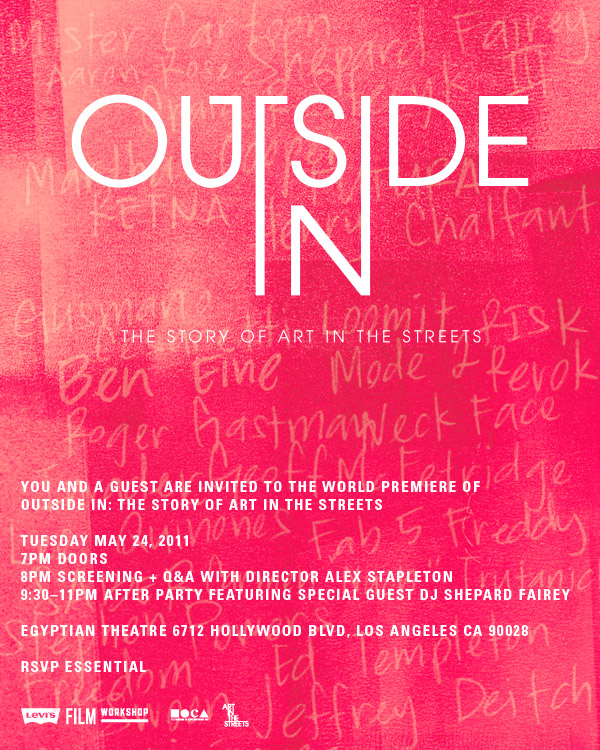 Mister Cartoon
Shepard Fairey
Aaron Rose
III
OUTSIDE
IN
Martha
FUTURA
RETNA
Henry Chalfant
THE STORY OF ART IN THE STREETS
Loomit RISK
Ben Eine Mode 2 Revok
Roger Gastman Neck Face
Geoff McFetridge
YOU AND A GUEST ARE INVITED TO THE WORLD PREMIERE OF
OUTSIDE IN: THE STORY OF ART IN THE STREETS
Quinones Fab 5 Freddy
TUESDAY MAY 24, 2011
7PM DOORS
8PM SCREENING + Q&A WITH DIRECTOR ALEX STAPLETON
9:30–11PM AFTER PARTY FEATURING SPECIAL GUEST DJ SHEPARD FAIREY
EGYPTIAN THEATRE 6712 HOLLYWOOD BLVD, LOS ANGELES CA 90028
Powers
Ed Templeton
RSVP ESSENTIAL
Freedom
Jeffrey Deitch
LEVI'S FILM WORKSHOP MOCA ART IN THE STREETS